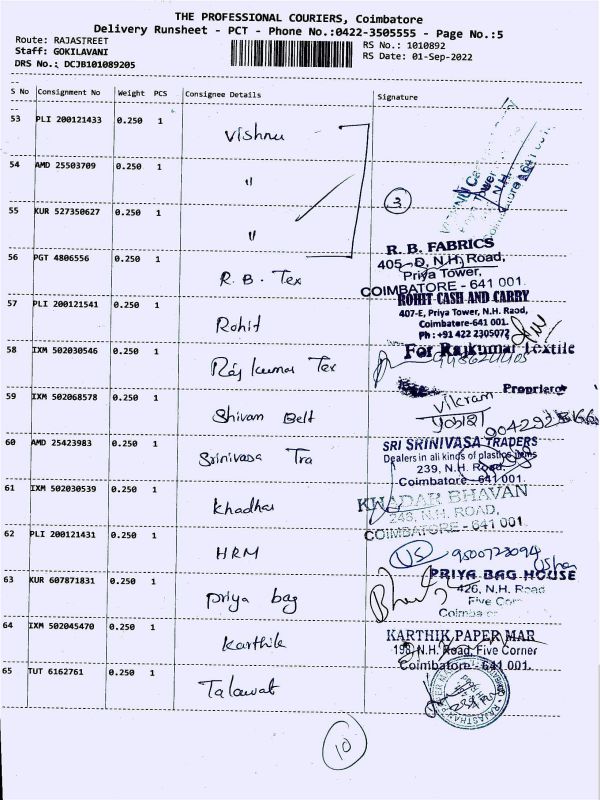 THE PROFESSIONAL COURIERS, Coimbatore
Delivery Runsheet - PCT - Phone No.:0422-3505555 - Page No.:5
Route: RAJASTREET
RS No.: 1010892
Staff: GOKILAVANI
RS Date: 01-Sep-2022
DRS No.: DCJB101089205
S No Consignment No Weight PCS Consignee Details Signature
53 PLI 200121433 0.250 1 Vishnu
54 AMD 25503709 0.250 1 "
3
55 KUR 527350627 0.250 1 "
56 PGT 4806556 0.250 1 R.B. Tex
R. B. FABRICS
405-D, N.H. Road,
Priya Tower,
COIMBATORE - 641 001.
57 PLI 200121541 0.250 1 Rohit
ROHIT CASH AND CARRY
407-E, Priya Tower, N.H. Raod,
Coimbatore-641 001.
Ph : +91 422 2305072
58 IXM 502030546 0.250 1 Raj kumar Tex
For Rajkumar Textile
Proprietor
59 IXM 502068578 0.250 1 Shivam Belt
Vikram
60 AMD 25423983 0.250 1 Srinivasa Tra
SRI SRINIVASA TRADERS
Dealers in all kinds of plastic items
239, N.H. Road,
Coimbatore - 641 001.
61 IXM 502030539 0.250 1 Khadhar
KHADAR BHAVAN
248, N.H. ROAD,
COIMBATORE - 641 001.
62 PLI 200121431 0.250 1 HRM
US 9500723094
Usha
63 KUR 607871831 0.250 1 priya bag
PRIYA BAG HOUSE
426, N.H. Road
Five Cor
Coimba
64 IXM 502045470 0.250 1 Karthik
KARTHIK PAPER MAR
198, N.H. Road, Five Corner
Coimbatore - 641 001.
65 TUT 6162761 0.250 1 Talawat
10